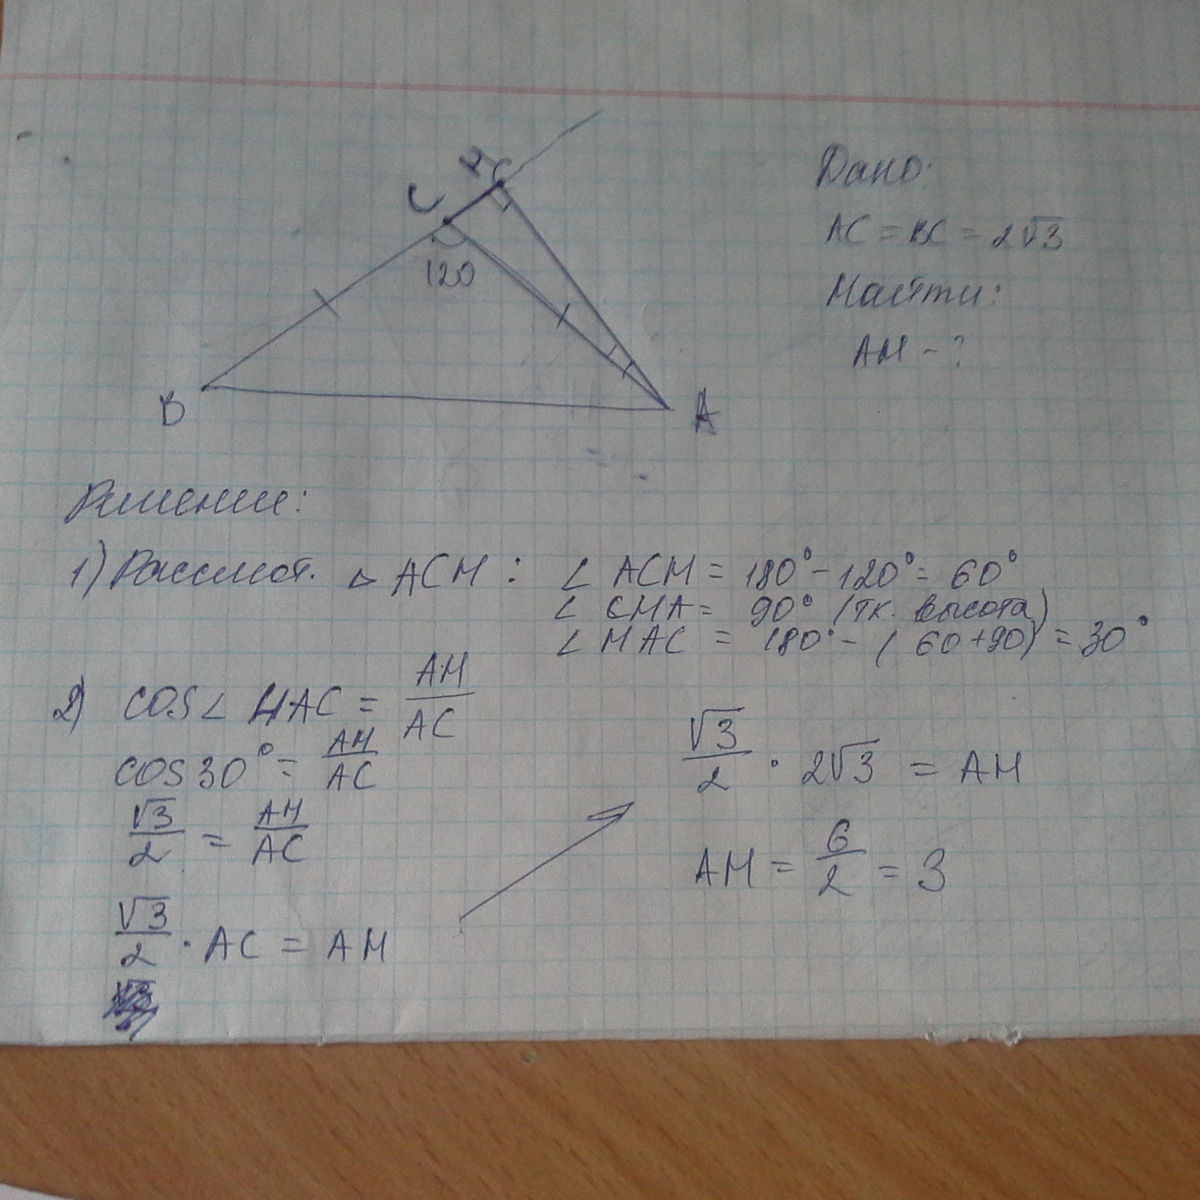 H
C
120
B
A
Дано:
AC = BC = 2√3
Найти:
AH - ?
Решение:
1) Рассмот. △ ACH : ∠ ACH = 180° - 120° = 60°
∠ CHA = 90° (тк. высота)
∠ HAC = 180° - (60+90) = 30°
2) cos∠ HAC = AH/AC
cos30° = AH/AC
√3/2 = AH/AC
√3/2 · AC = AH
√3/2 · 2√3 = AH
AH = 6/2 = 3